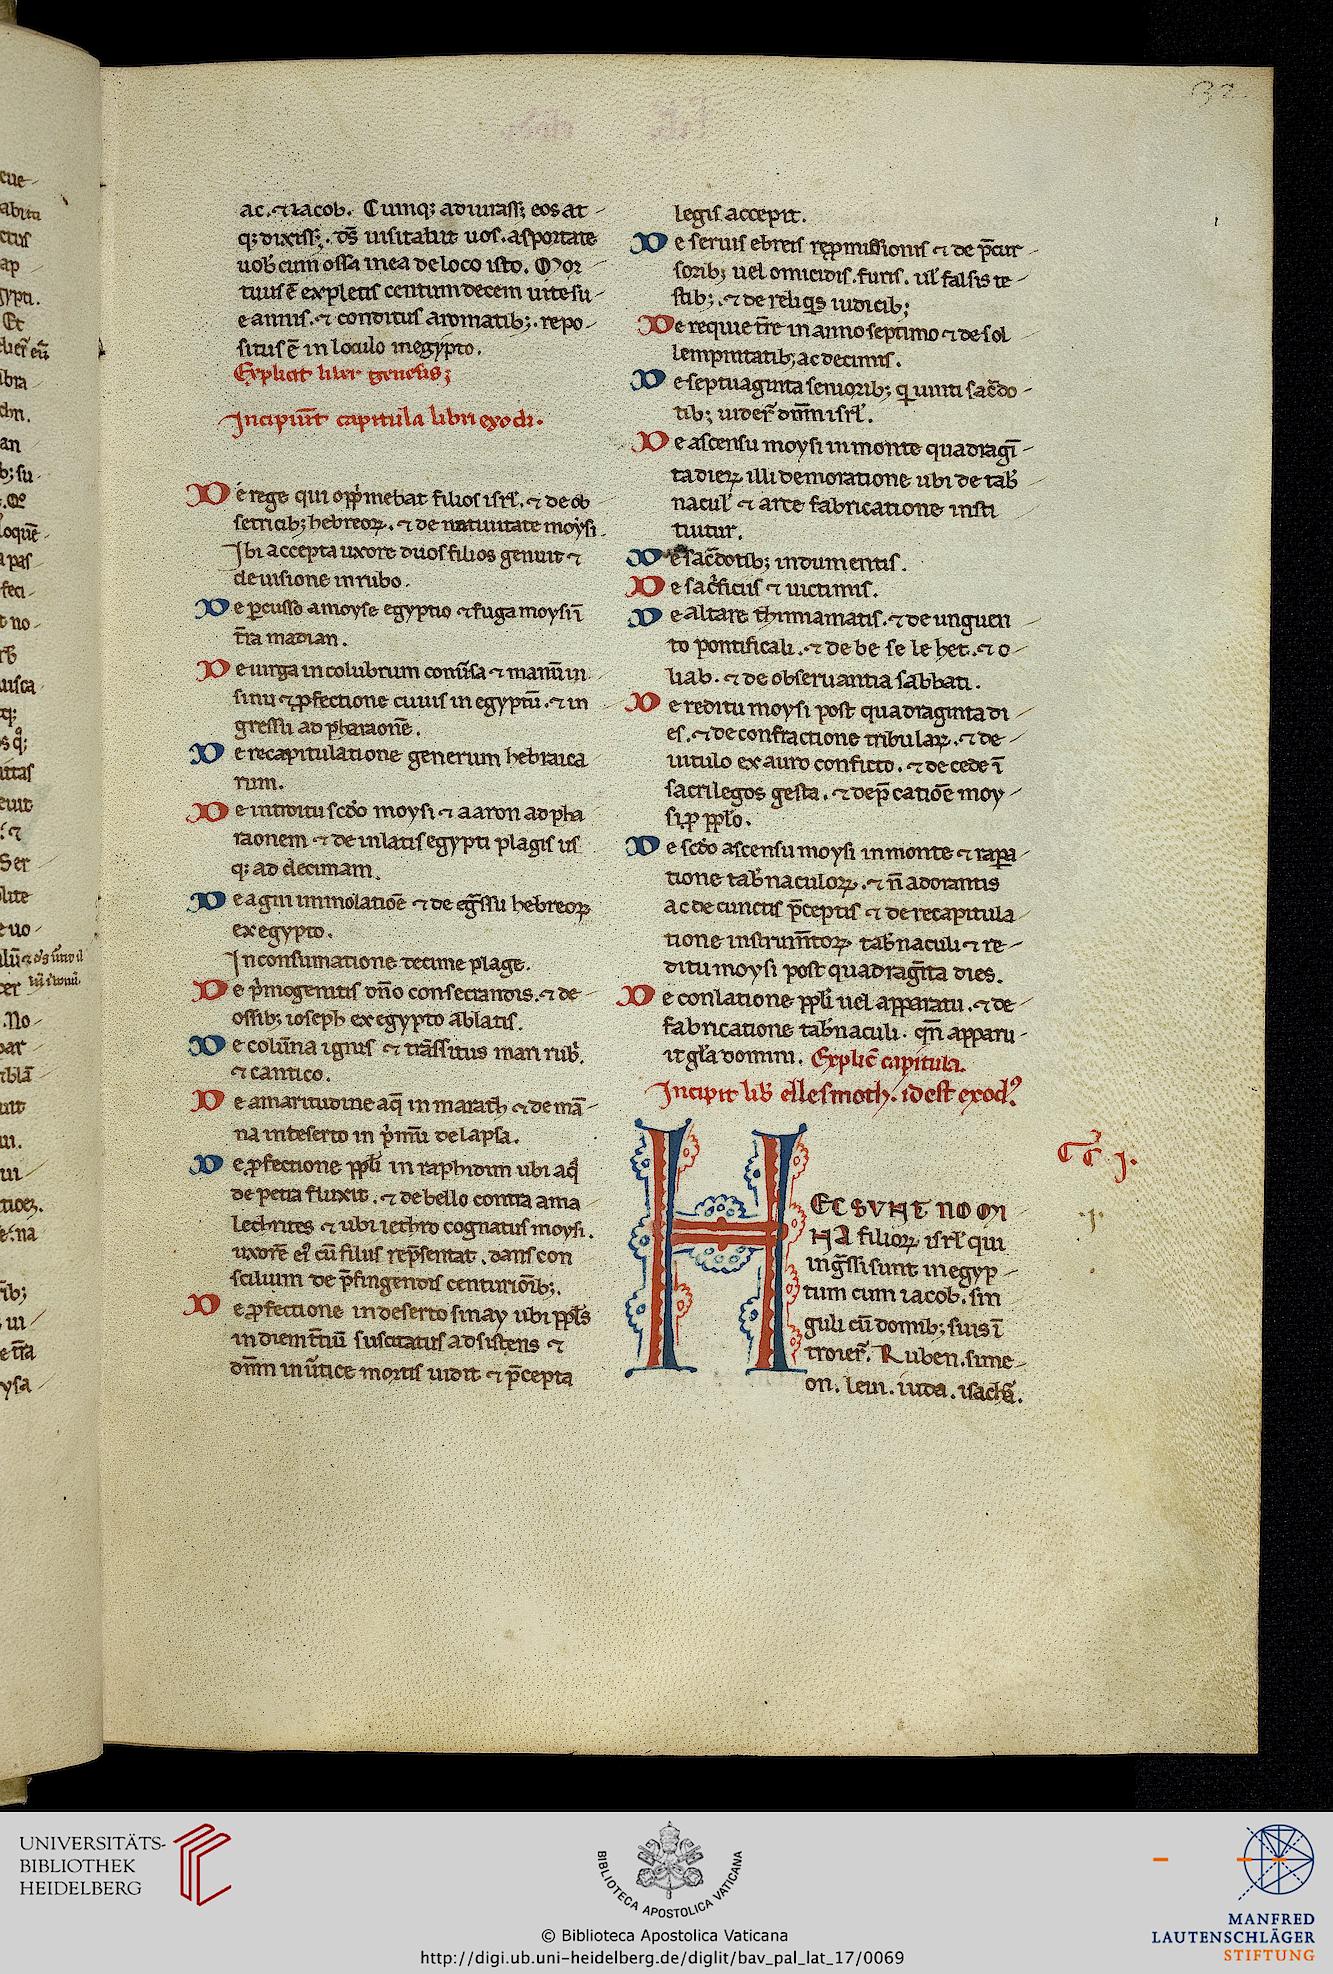 32
ac. ⁊ iacob. Cumq; adiurass; eos at
q; dixiss;. ds̄ uisitabit uos. asportate
uob̄ cum ossa mea de loco isto. Mor
tuus ē expletis centum decem uite su
e annis. ⁊ conditus aromatib;. repo
situs ē in loculo in egypto.
Explicit liber genesis;
Incipiūt capitula libri exodi.
De rege qui opp̄mebat filios isrl̄. ⁊ de ob
setricib; hebreoꝝ. ⁊ de natiuitate moysi.
Ibi accepta uxore duos filios genuit ⁊
de uisione in rubo.
De ꝑcusso a moyse egyptio ⁊ fuga moysi ī
tr̄a madian.
De uirga in colubrum conūsa ⁊ manū in
sinu ⁊ ꝓfectione cuius in egyptū. ⁊ in
gressu ad pharaonē.
De recapitulatione generum hebraica
rum.
De introitu scd̄o moysi ⁊ aaron ad pha
raonem ⁊ de inlatis egypti plagis us
q; ad decimam.
De agni immolatiōe ⁊ de egr̄ssu hebreoꝝ
ex egypto.
In consumatione decime plage.
De p̄mogenitis dn̄o consecrandis. ⁊ de
ossib; ioseph ex egypto ablatis.
De colūna ignis ⁊ trāssitus mari rub̄.
⁊ cantico.
De amaritudine aq̄ in marath ⁊ de mā
na in deserto in p̄mū delapsa.
De ꝓfectione ppl̄i in raphidim ubi aq̄
de petra fluxit. ⁊ de bello contra ama
lechites ⁊ ubi iethro cognatus moysi.
uxorē ei cū filiis rep̄sentat. dans con
scilium de p̄fingendis centuriōib;.
De ꝓfectione in deserto sinay ubi ppl̄s
in diem t̄tiū suscitatus adsistens ⁊
dn̄m in ūtice montis uidit ⁊ p̄cepta
legis accepit.
De seruis ebreis rep̱missionis ⁊ de p̄cur
sorib; uel omicidis. furis. ul̄ falsis te
stib;. ⁊ de reliq̄s iudicib;
De requie tr̄e in anno septimo ⁊ de sol
lempnitatib; ac decimis.
De septuaginta seniorib; q̱ uniti sac̄do
tib; uider̄ dn̄m isrl̄.
De ascensu moysi in monte quadragī
ta dieꝝ illi demoratione ubi de tab̄
nacul̄ ⁊ arce fabricatione insti
tuitur.
De sac̄dotib; indumentis.
De sac̄ficiis ⁊ uictimis.
De altare thimiamatis. ⁊ de unguen
to pontificali. ⁊ de be se le het. ⁊ o
liab. ⁊ de obseruantia sabbati.
De reditu moysi post quadraginta di
es. ⁊ de confractione tabularꝝ. ⁊ de
uitulo ex auro conficto. ⁊ de cede ī
sacrilegos gesta. ⁊ dep̄catiōe moy
si ꝓ ppl̄o.
De scd̄o ascensu moysi in monte ⁊ rapa
tione tab̄naculoꝝ. ⁊ n̄ adorantis
ac de cunctis p̄ceptis ⁊ de recapitula
tione instrum̄toꝝ tab̄naculi ⁊ re
ditu moysi post quadraḡta dies.
De conlatione ppl̄i uel apparatu. ⁊ de
fabricatione tab̄naculi. qn̄ apparu
it gl̄a domini. Explic̄ capitula.
Incipit lib̄ ellesmoth. id est exod᷒.
C̄ C̄ j.
.j.
HEC SVNT NOMI
NA filioꝝ isrl̄ qui
ingr̄ssi sunt in egyp
tum cum iacob. sin
guli cū domib; suis ī
troier̄. Ruben. sime
on. leui. iuda. isach̄.
UNIVERSITÄTS-
BIBLIOTHEK
HEIDELBERG
BIBLIOTECA APOSTOLICA VATICANA
© Biblioteca Apostolica Vaticana
http://digi.ub.uni-heidelberg.de/diglit/bav_pal_lat_17/0069
MANFRED
LAUTENSCHLÄGER
STIFTUNG